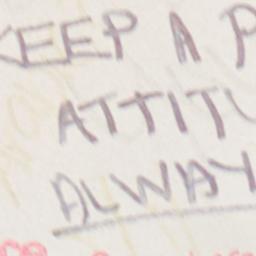 KEEP A P
ATTITU
ALWAY